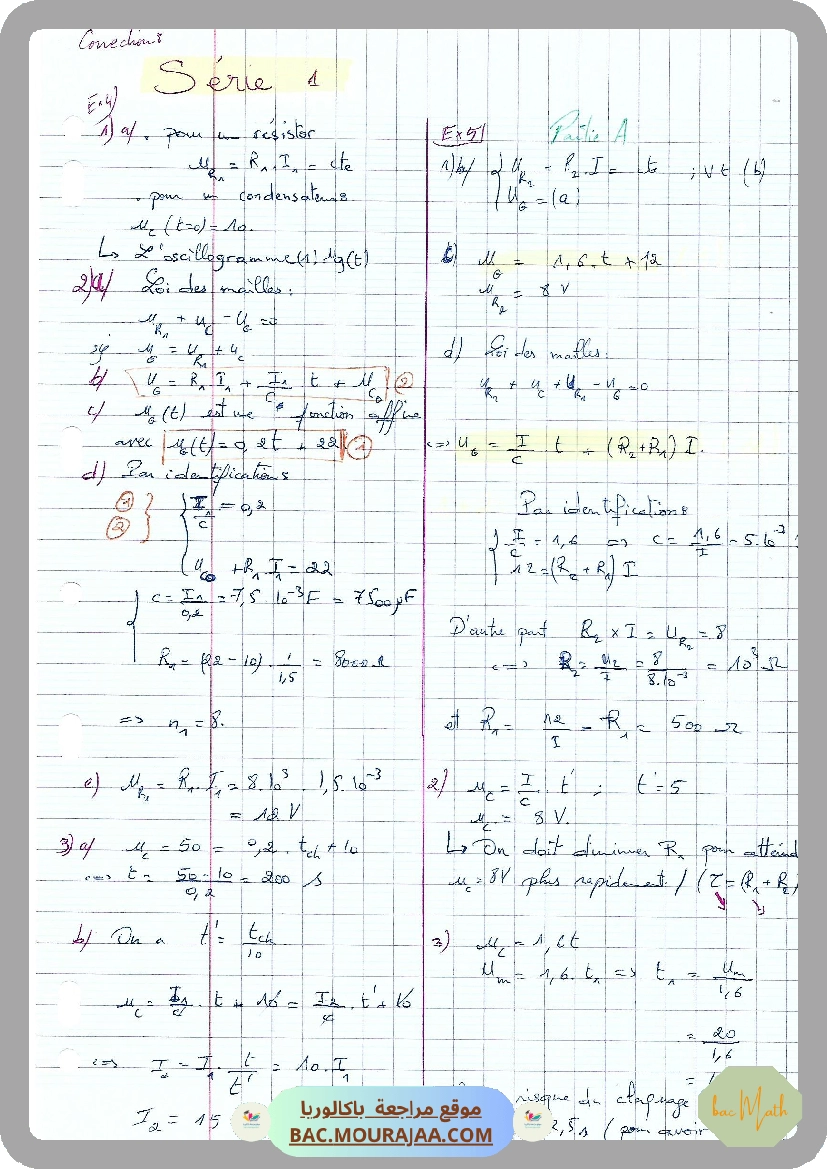 Corrections
Série 1
Ex4)
1) a) . pour un résistor
u_R1 = R1 . I1 = cte
. pour un condensateur
u_c (t=0) = 10.
↳ L'oscillogramme (1): u_G(t)
2) a) Loi des mailles:
u_R1 + u_c - u_G = 0
u_G = u_R1 + u_c
b) u_G = R1 I1 + I1/C t + u_C0 (2)
c) u_G(t) est une fonction affine
avec u_G(t) = 0,2t + 22 (1)
d) Par identifications
(1) (2) } { I1/C = 0,2
u_C0 + R1 I1 = 22
{ C = I1/0,2 = 7,5 10^-3 F = 7500 µF
R1 = (22 - 10) . 1/1,5 = 8000 Ω
=> n1 = 8.
e) u_R1 = R1 . I1 = 8.10^3 . 1,5.10^-3
= 12 V
3) a) u_c = 50 = 0,2 . t_ch + 10
<=> t = 50-10/0,2 = 200 s
b) On a t' = t_ch/10
u_c = I1/C . t + 10 = I2/C . t' + 10
<=> I2 = I1 . t/t' = 10 . I1
I2 = 15
Ex 5) Partie A
1) b) { u_R2 = R2 . I = cte ; ∀t (b)
u_G = (a)
c) u_G = 1,6.t + 12
u_R2 = 8 V
d) Loi des mailles:
u_R2 + u_c + u_R1 - u_G = 0
<=> u_G = I/C t + (R2 + R1) I.
Par identifications
{ I/C = 1,6 => C = 1,6/I = 5.10^-3
12 = (R2 + R1) I
D'autre part R2 × I = u_R2 = 8
<=> R2 = u2/I = 8/8.10^-3 = 10^3 Ω
et R1 = 12/I - R1 = 500 Ω
2) u_c = I/C . t' ; t' = 5
u_c = 8 V.
↳ On doit diminuer R1 pour atteind
u_c = 8V plus rapidement / (τ = (R1 + R2)
3) u_c = 1,6t
u_m = 1,6 . t1 => t1 = u_m/1,6
= 20/1,6
=
risque du claquage
2,5 s (pour avoir
موقع مراجعة باكالوريا
BAC.MOURAJAA.COM
bac Math